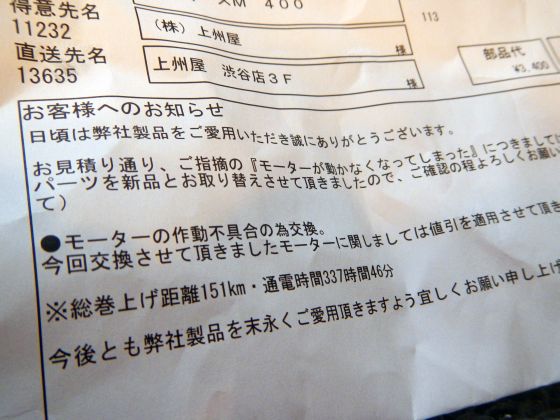 得意先名
XM 400
113
11232
(株) 上州屋
様
直送先名
13635
上州屋 渋谷店3F
様
部品代
¥3,400
お客様へのお知らせ
日頃は弊社製品をご愛用いただき誠にありがとうございます。
お見積り通り、ご指摘の『モーターが動かなくなってしまった』につきましては
パーツを新品とお取り替えさせて頂きましたので、ご確認の程よろしくお願い
て）
●モーターの作動不具合の為交換。
今回交換させて頂きましたモーターに関しましては値引を適用させて頂き
※総巻上げ距離151km・通電時間337時間46分
今後とも弊社製品を末永くご愛用頂きますよう宜しくお願い申し上げ